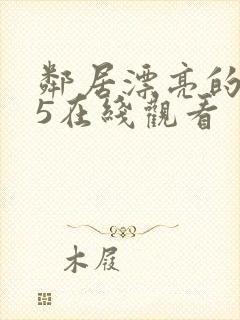 鄰居漂亮的
5在綫觀看
木屐